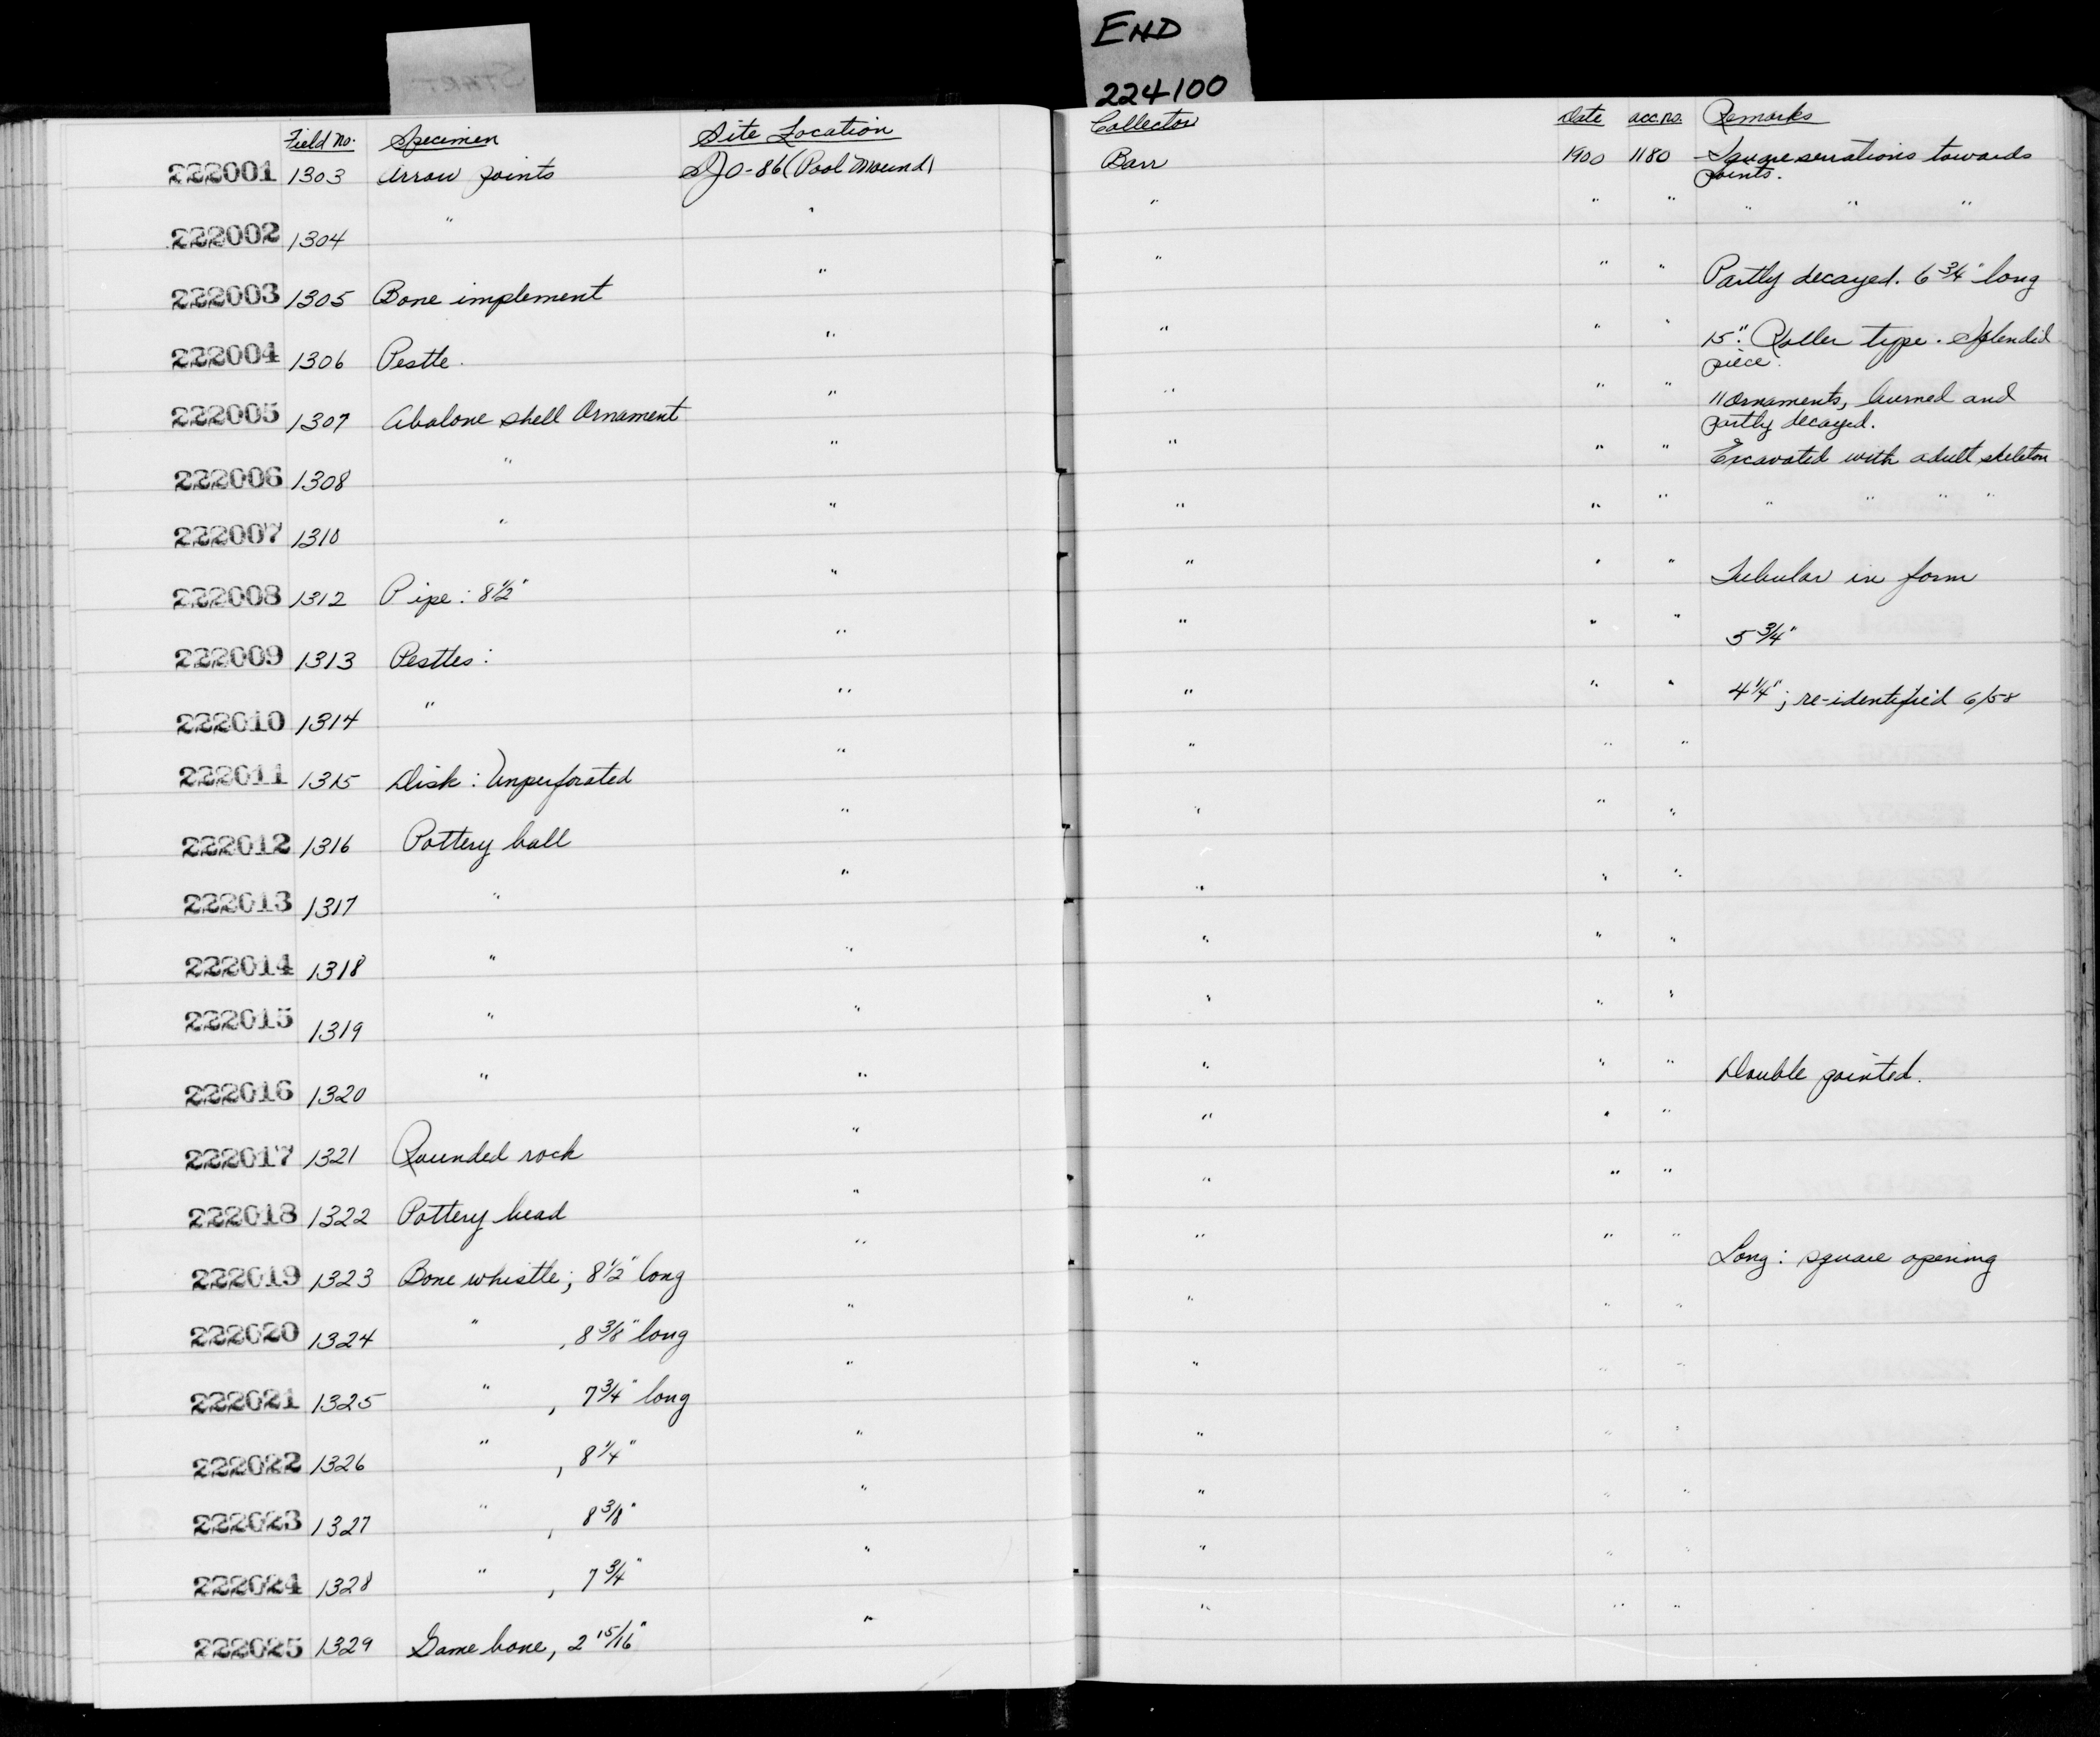 START
END
224100
Field No. Specimen Site Location Collector Date acc.no. Remarks
222001 1303 Arrow points SJO-86 (Pool Mound) Barr 1900 1180 Square serrations towards
points.
222002 1304 " " " " " " " "
222003 1305 Bone implement " " " " Partly decayed. 6 3/4" long
222004 1306 Pestle. " " " " 15". Roller type. Splendid
piece.
222005 1307 Abalone shell Ornament " " " " 11 ornaments, burned and
partly decayed.
222006 1308 " " " " " Excavated with adult skeleton
222007 1310 " " " " " " " " "
222008 1312 Pipe: 8 1/2" " " " " Tubular in form
222009 1313 Pestles: " " " " 5 3/4"
222010 1314 " " " " " 4 1/4"; re-identified 6/58
222011 1315 Disk: Unperforated " " " "
222012 1316 Pottery ball " " " "
222013 1317 " " " " "
222014 1318 " " " " "
222015 1319 " " " " "
222016 1320 " " " " " Double pointed.
222017 1321 Rounded rock " " " "
222018 1322 Pottery bead " " " "
222019 1323 Bone whistle; 8 1/2" long " " " " Long: square opening
222020 1324 " , 8 3/8" long " " " "
222021 1325 " , 7 3/4" long " " " "
222022 1326 " , 8 1/4" " " " "
222023 1327 " , 8 3/8" " " " "
222024 1328 " , 7 3/4" " " " "
222025 1329 Game bone, 2 15/16" " " " "